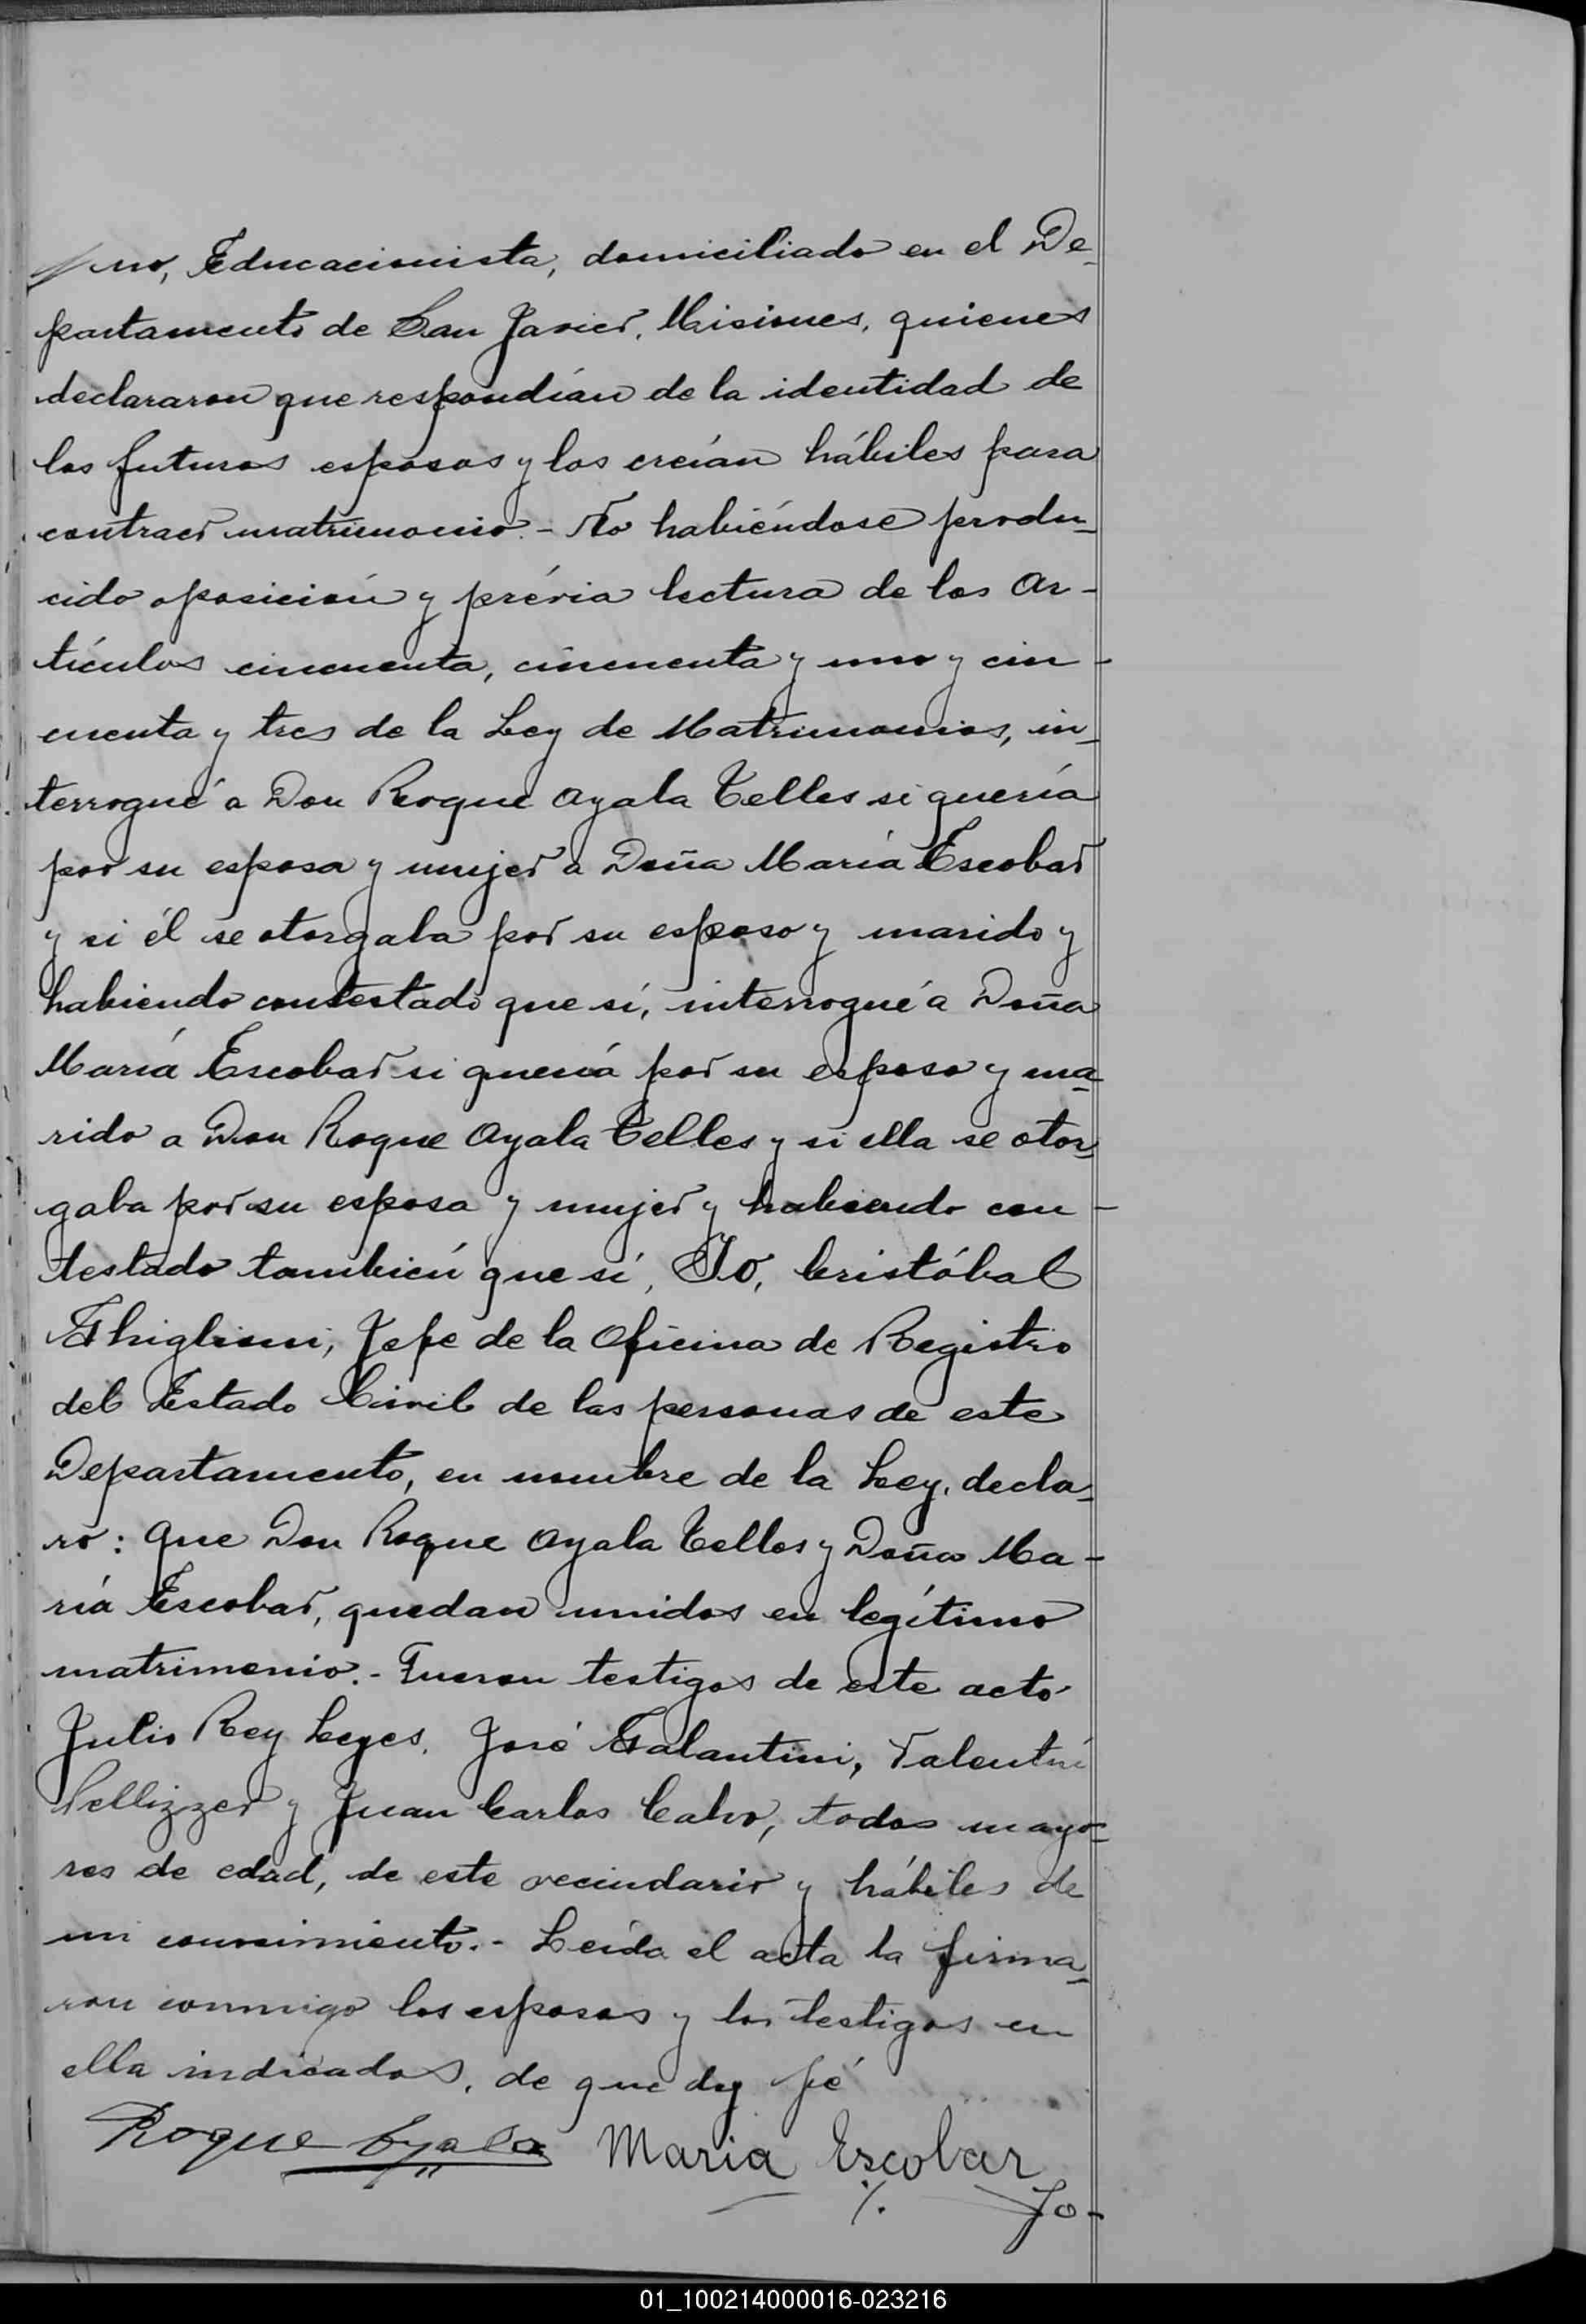 no, Educacionista, domiciliado en el De-
partamento de San Javier, Misiones, quienes
declararon que respondían de la identidad de
los futuros esposos y los creían hábiles para
contraer matrimonio.- No habiéndose produ-
cido oposición y prévia lectura de los Ar-
tículos cincuenta, cincuenta y uno y cin-
cuenta y tres de la Ley de Matrimonios, in-
terrogué a Don Roque Ayala Telles si quería
por su esposa y mujer a Doña María Escobar
y si él se otorgaba por su esposo y marido y
habiendo contestado que sí, interrogué a Doña
María Escobar si quería por su esposo y ma-
rido a Don Roque Ayala Telles y si ella se otor-
gaba por su esposa y mujer y habiendo con-
testado también que sí, Yo, Cristóbal
Ghiglioni, Jefe de la Oficina de Registro
del Estado Civil de las personas de este
Departamento, en nombre de la Ley, decla-
ro: Que Don Roque Ayala Telles y Doña Ma-
ría Escobar, quedan unidos en legítimo
matrimonio.- Fueron testigos de este acto
Julio Rey Leyes, José Galantini, Valentín
Pellizzer y Juan Carlos Calvo, todos mayo-
res de edad, de este vecindario y hábiles de
mi conocimiento.- Leída el acta la firma-
ron conmigo los esposos y los testigos en
ella indicados, de que doy fé
Roque Ayala Maria Escobar
./. Jo-
01_100214000016-023216